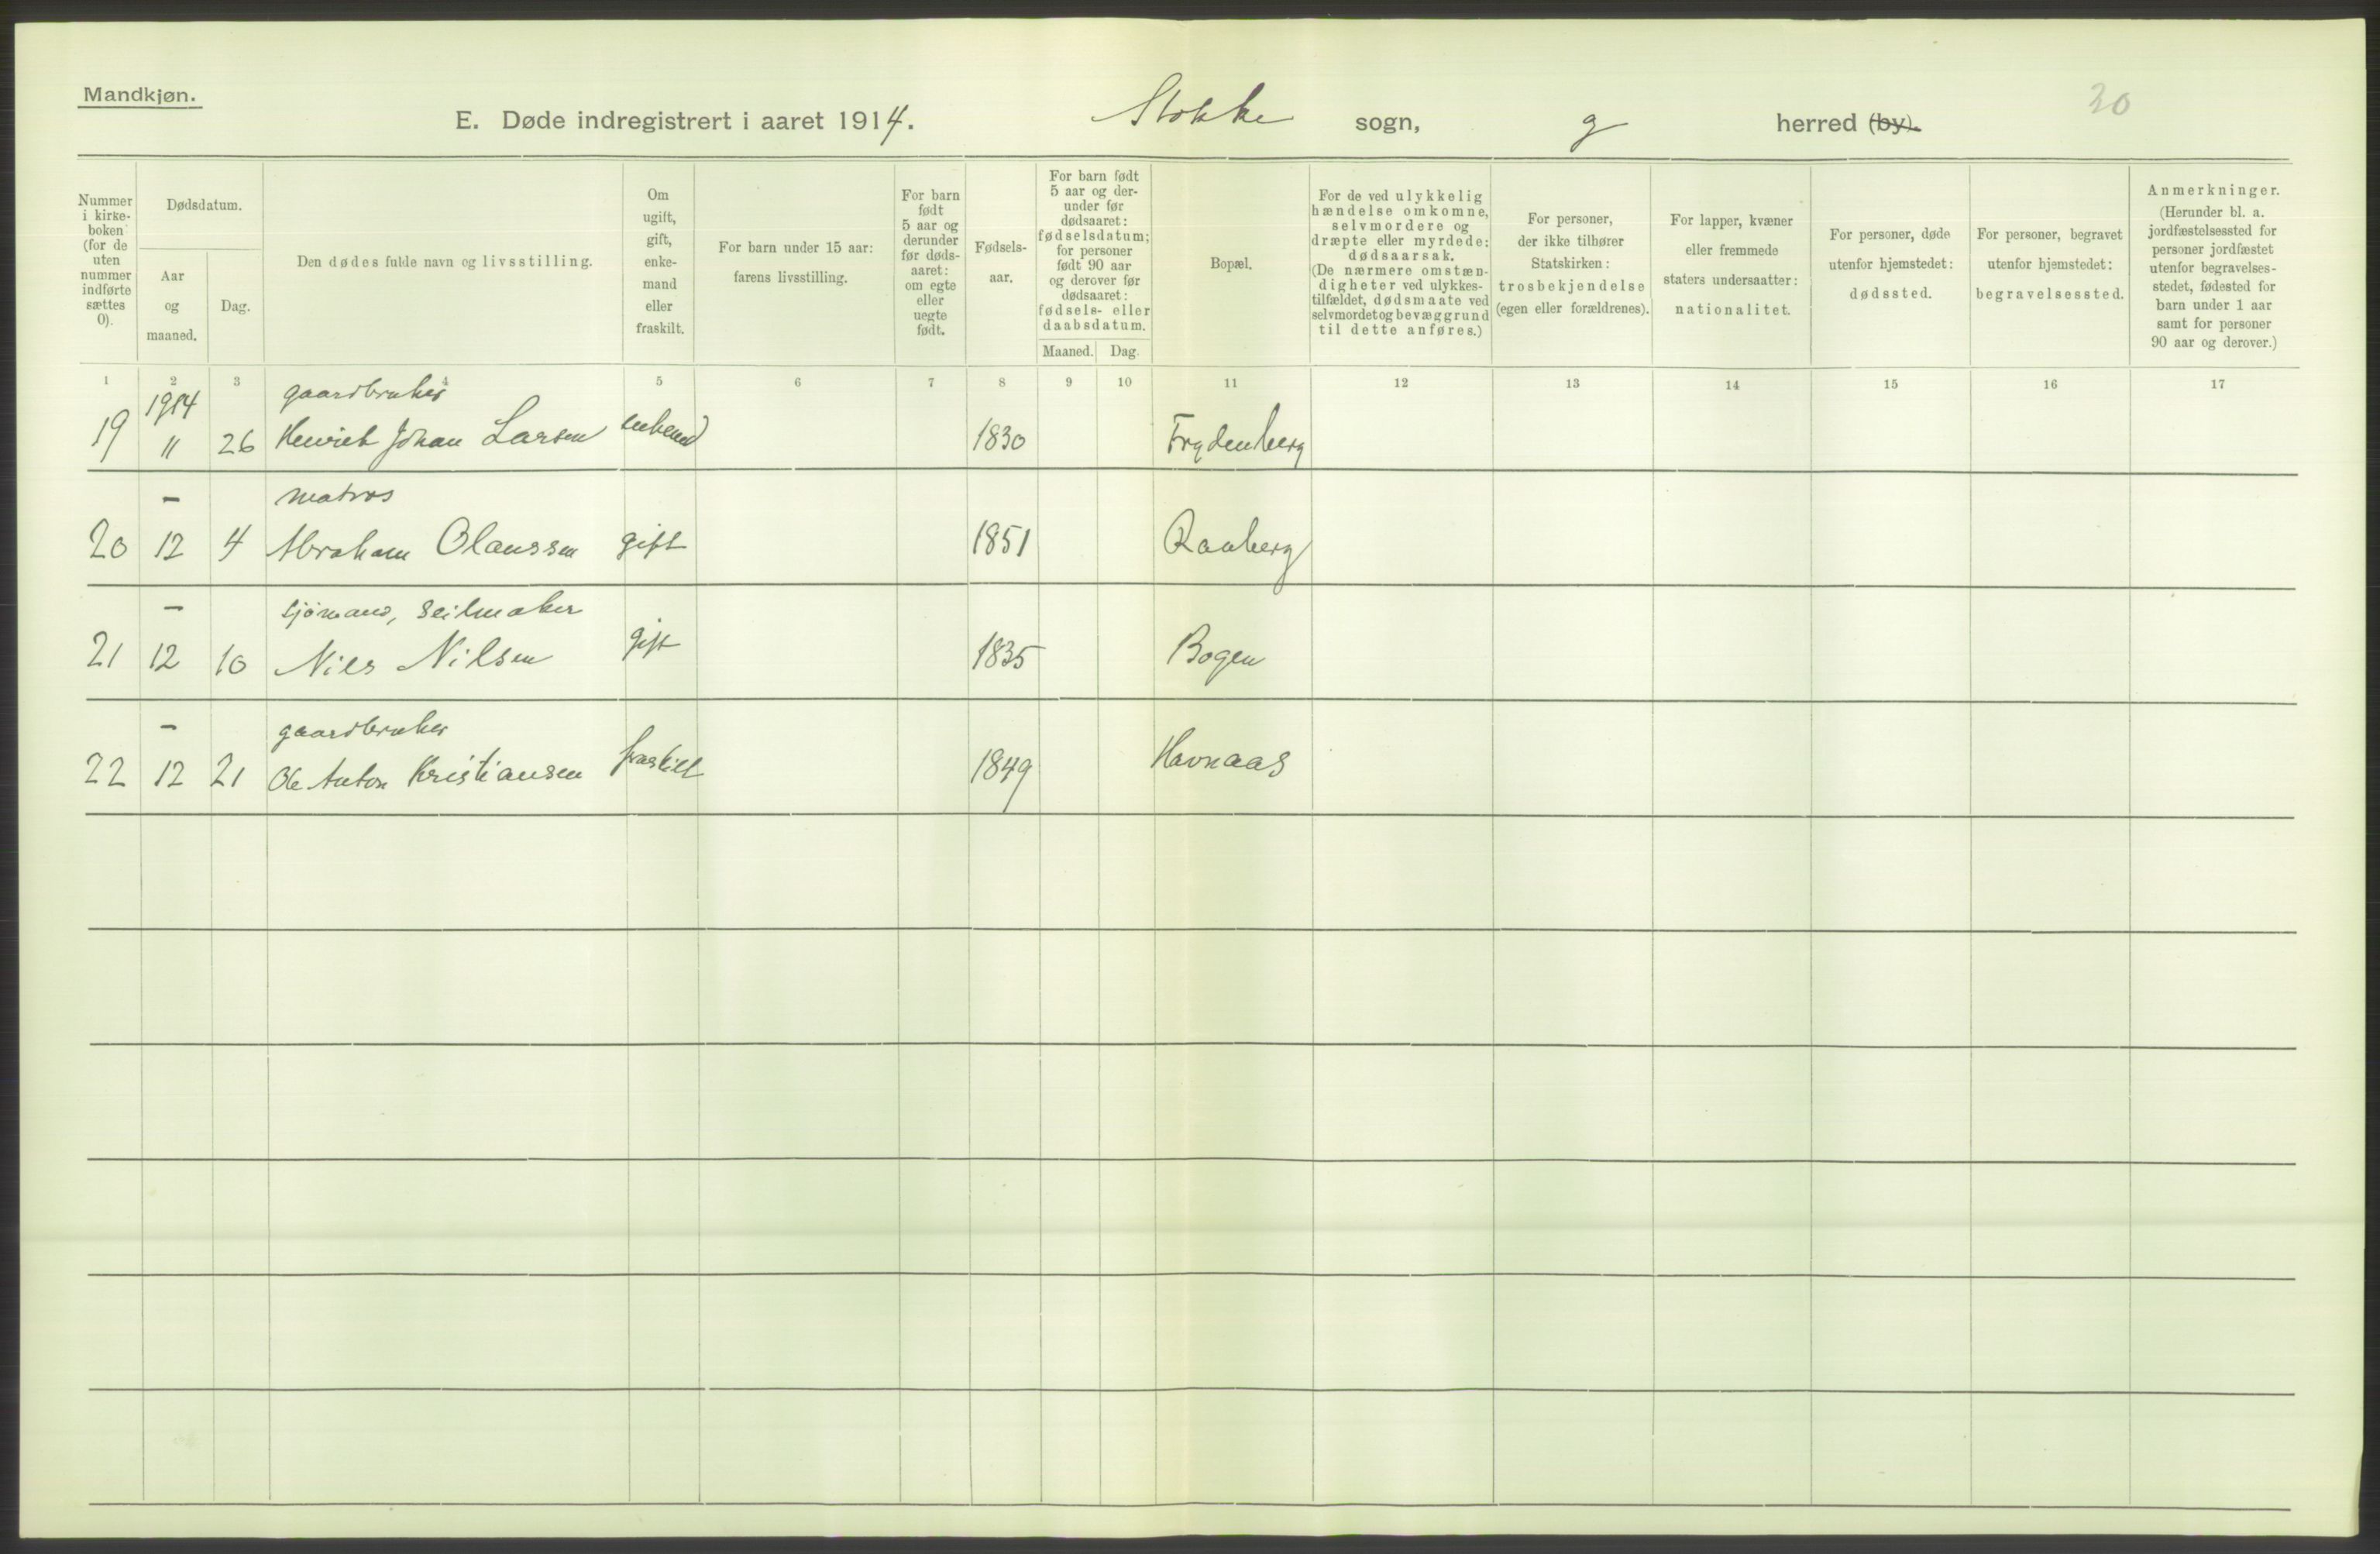 Mandkjøn.
E. Døde indregistrert i aaret 1914. Stokke sogn, g herred (by).
20
Nummer i kirkeboken (for de uten nummer indførte sættes 0).
Dødsdatum.
Aar og maaned.
Dag.
Den dødes fulde navn og livsstilling.
Om ugift, gift, enkemand eller fraskilt.
For barn under 15 aar: farens livsstilling.
For barn født 5 aar og derunder før dødsaaret: om egte eller uegte født.
Fødselsaar.
For barn født 5 aar og derunder før dødsaaret: fødselsdatum; for personer født 90 aar og derover før dødsaaret: fødsels- eller daabsdatum.
Maaned. Dag.
Bopæl.
For de ved ulykkelig hændelse omkomne, selvmordere og dræpte eller myrdede: dødsaarsak. (De nærmere omstændigheter ved ulykkestilfældet, dødsmaate ved selvmordet og bevæggrund til dette anføres.)
For personer, der ikke tilhører Statskirken: trosbekjendelse (egen eller forældrenes).
For lapper, kvæner eller fremmede staters undersaatter: nationalitet.
For personer, døde utenfor hjemstedet: dødssted.
For personer, begravet utenfor hjemstedet: begravelsessted.
Anmerkninger. (Herunder bl. a. jordfæstelsessted for personer jordfæstet utenfor begravelsesstedet, fødested for barn under 1 aar samt for personer 90 aar og derover.)
1 2 3 4 5 6 7 8 9 10 11 12 13 14 15 16 17
1914 gaardbruker
19 11 26 Henrick Johan Larsen enkemd 1830 Frydenberg
– matros
20 12 4 Abraham Olaussen gift 1851 Raaberg
– sjømand, seilmaker
21 12 10 Nils Nilsen gift 1835 Bogen
– gaardbruker
22 12 21 Ole Anton Kristiansen fraskilt 1849 Havnaas